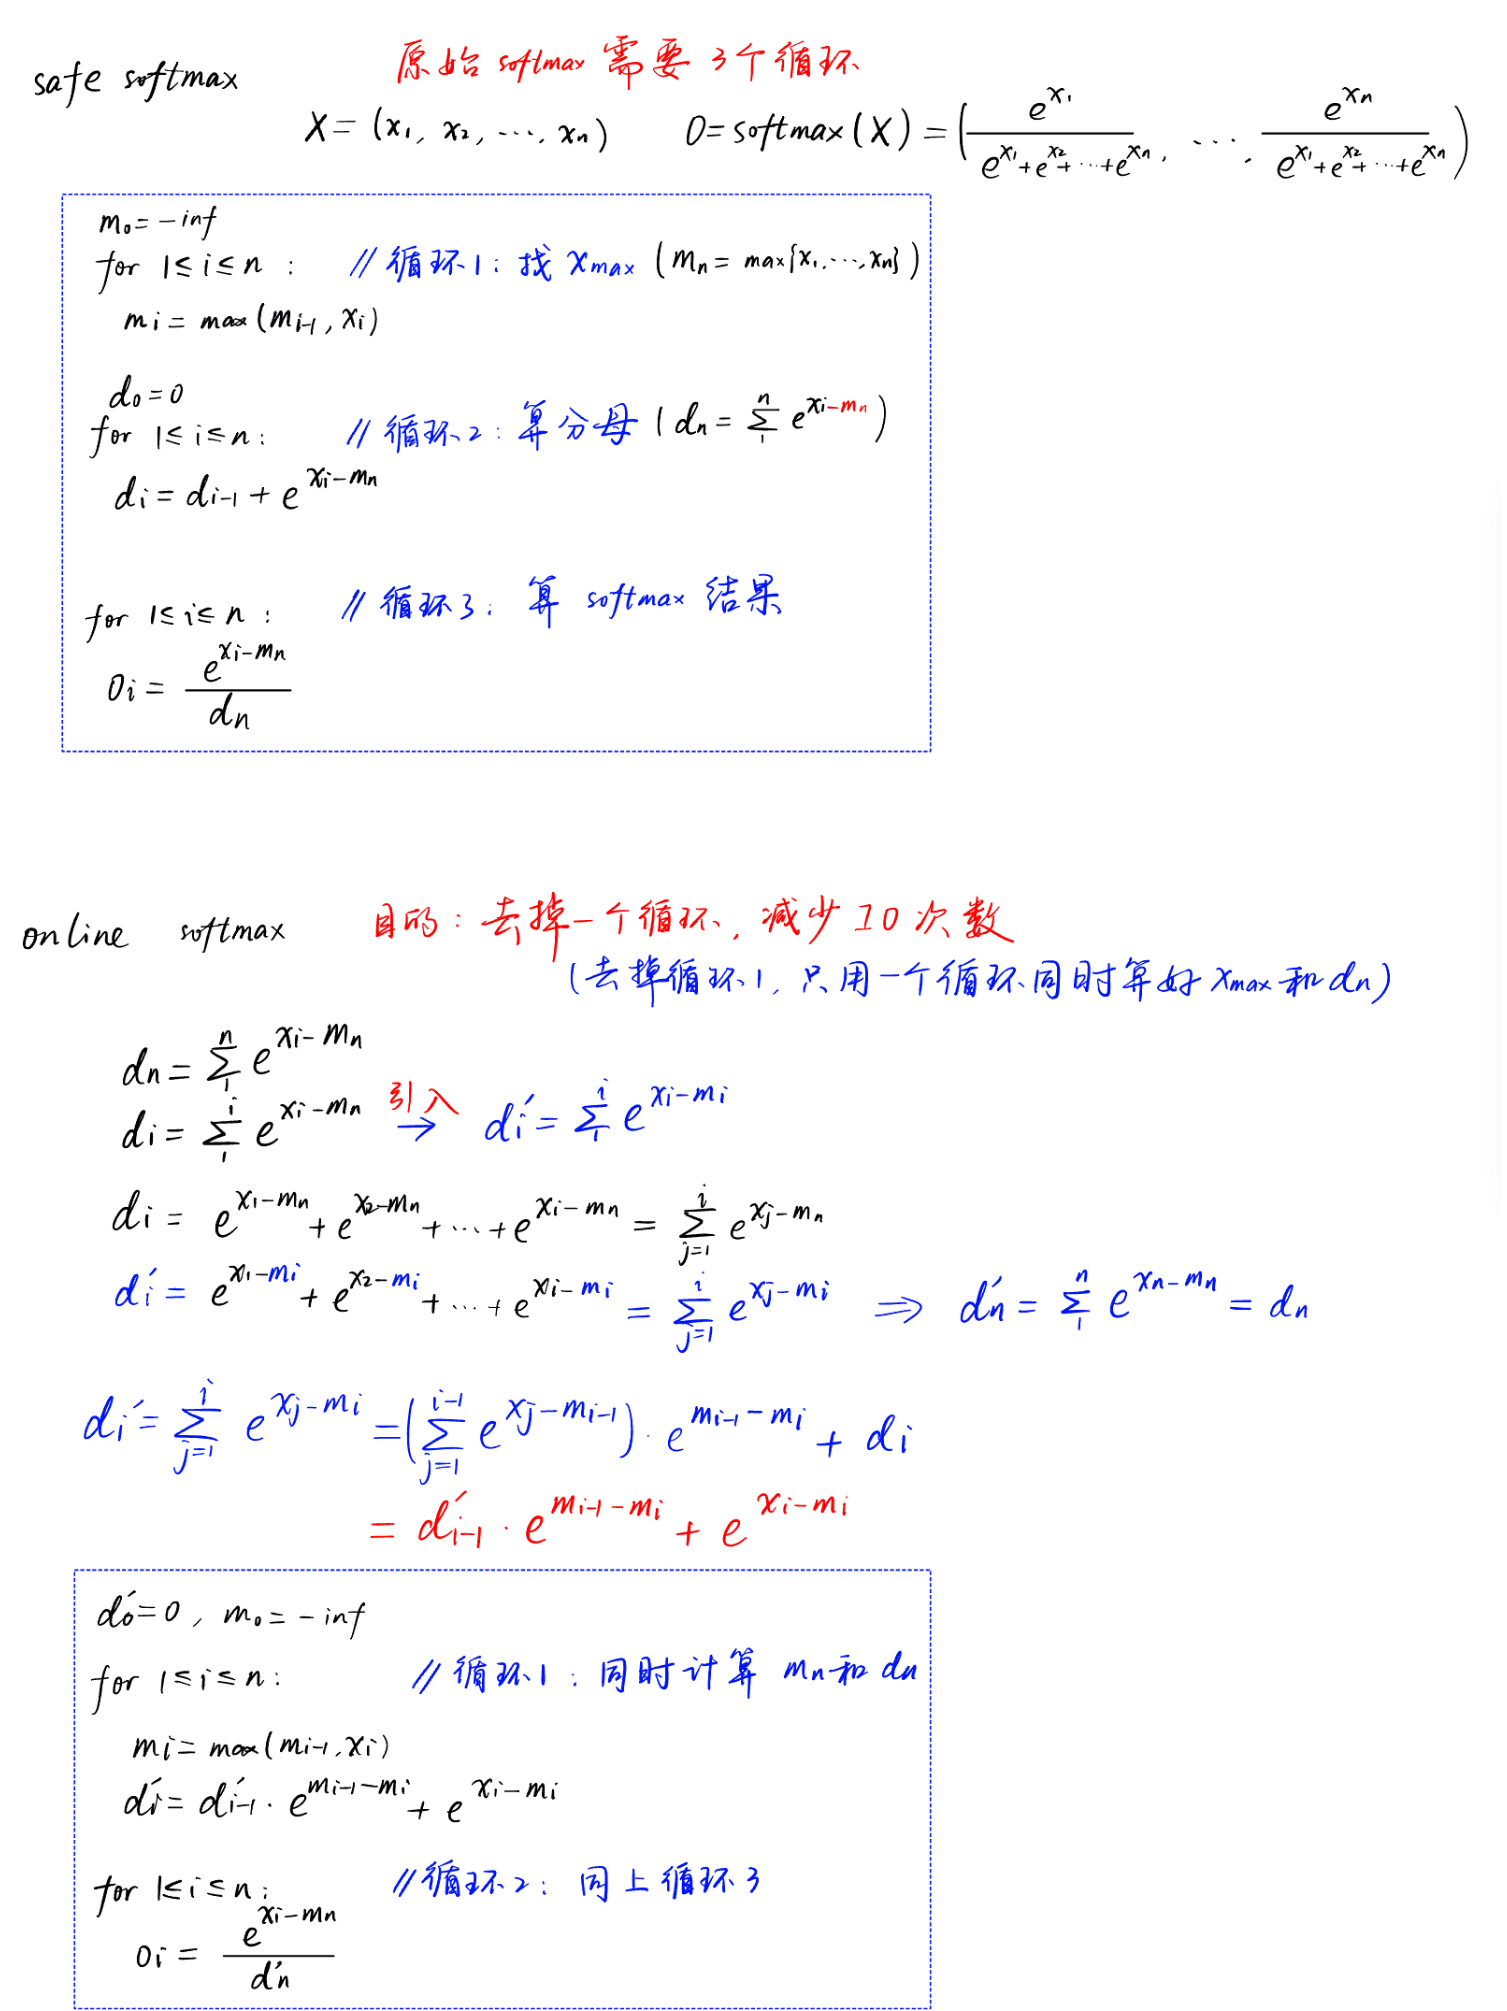 safe softmax 原始 softmax 需要 3个循环
X = (x₁, x₂, ⋯, xₙ) O = softmax(X) = (e^{x₁} / (e^{x₁}+e^{x₂}+⋯+e^{xₙ}), ⋯, e^{xₙ} / (e^{x₁}+e^{x₂}+⋯+e^{xₙ}))
m₀ = -inf
for 1≤i≤n : // 循环1: 找 x_{max} (mₙ = max{x₁, ⋯, xₙ})
m_i = max(m_{i-1}, x_i)
d₀ = 0
for 1≤i≤n : // 循环2: 算分母 (dₙ = Σ_{1}^{n} e^{x_i-mₙ})
d_i = d_{i-1} + e^{x_i-mₙ}
for 1≤i≤n : // 循环3: 算 softmax 结果
O_i = e^{x_i-mₙ} / dₙ
online softmax 目的: 去掉一个循环, 减少IO次数
(去掉循环1, 只用一个循环同时算好 x_{max} 和 dₙ)
dₙ = Σ_{1}^{n} e^{x_i-mₙ}
d_i = Σ_{1}^{i} e^{x_i-mₙ} 引入 → d_i' = Σ_{1}^{i} e^{x_i-m_i}
d_i = e^{x₁-mₙ} + e^{x₂-mₙ} + ⋯ + e^{x_i-mₙ} = Σ_{j=1}^{i} e^{x_j-mₙ}
d_i' = e^{x₁-m_i} + e^{x₂-m_i} + ⋯ + e^{x_i-m_i} = Σ_{j=1}^{i} e^{x_j-m_i} ⇒ dₙ' = Σ_{1}^{n} e^{xₙ-mₙ} = dₙ
d_i' = Σ_{j=1}^{i} e^{x_j-m_i} = (Σ_{j=1}^{i-1} e^{x_j-m_{i-1}}) · e^{m_{i-1}-m_i} + d_i
= d_{i-1}' · e^{m_{i-1}-m_i} + e^{x_i-m_i}
d₀' = 0, m₀ = -inf
for 1≤i≤n : // 循环1: 同时计算 mₙ和 dₙ
m_i = max(m_{i-1}, x_i)
d_i' = d_{i-1}' · e^{m_{i-1}-m_i} + e^{x_i-m_i}
for 1≤i≤n : // 循环2: 同上循环3
O_i = e^{x_i-mₙ} / dₙ'